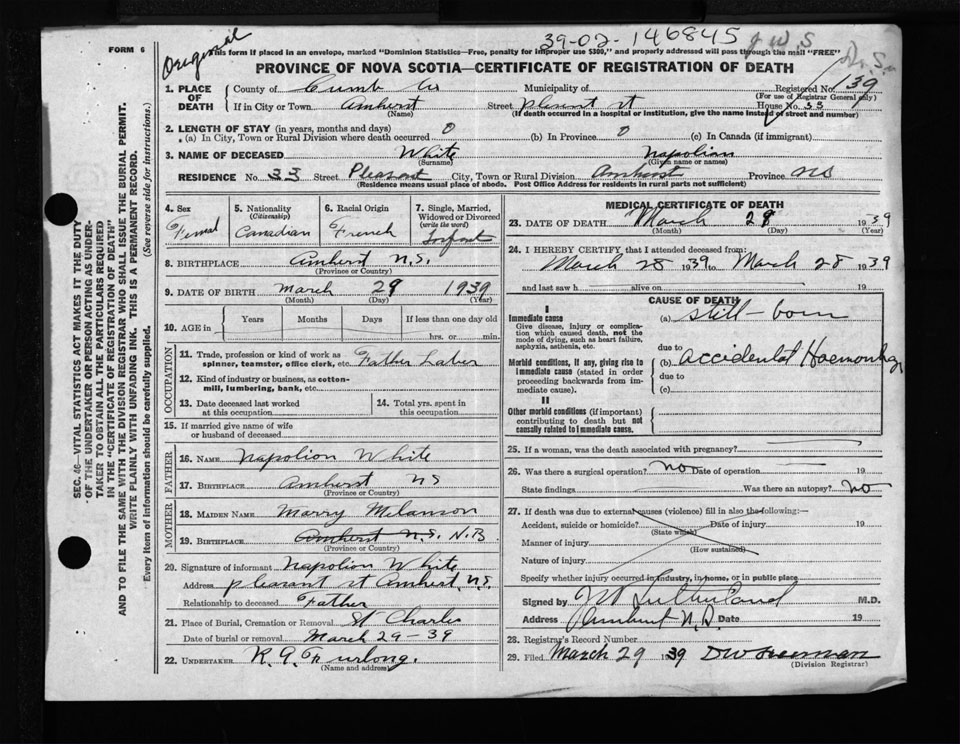 39-02-146845 J W S
Original
FORM 6
This form if placed in an envelope, marked "Dominion Statistics—Free, penalty for improper use $300," and properly addressed will pass through the mail "FREE"
PROVINCE OF NOVA SCOTIA—CERTIFICATE OF REGISTRATION OF DEATH
1. PLACE OF DEATH
County of Cumb Co Municipality of Registered No. 139
(For use of Registrar General only)
If in City or Town Amherst Street pleasant st House No. 33
(Name) (If death occurred in a hospital or institution, give the name instead of street and number)
2. LENGTH OF STAY (in years, months and days)
(a) In City, Town or Rural Division where death occurred 0 (b) In Province 0 (c) In Canada (if immigrant)
3. NAME OF DECEASED White Napolian
(Surname) (Given name or names)
RESIDENCE No. 33 Street Pleasant City, Town or Rural Division Amherst Province NS
(Residence means usual place of abode. Post Office Address for residents in rural parts not sufficient)
4. Sex
Femal
5. Nationality
(Citizenship)
Canadian
6. Racial Origin
French
7. Single, Married, Widowed or Divorced
(write the word)
Infant
8. BIRTHPLACE Amherst N.S.
(Province or Country)
9. DATE OF BIRTH March 29 1939
(Month) (Day) (Year)
10. AGE in
Years Months Days If less than one day old
hrs. or min.
OCCUPATION
11. Trade, profession or kind of work as
spinner, teamster, office clerk, etc. Father Laber
12. Kind of industry or business, as cotton-
mill, lumbering, bank, etc.
13. Date deceased last worked
at this occupation
14. Total yrs. spent in
this occupation
15. If married give name of wife
or husband of deceased
FATHER
16. NAME Napolion White
17. BIRTHPLACE Amherst NS
(Province or Country)
MOTHER
18. MAIDEN NAME Marry Melanson
19. BIRTHPLACE Amherst N.S. N.B
(Province or Country)
20. Signature of informant Napolion White
Address pleasant st Amherst N.S.
Relationship to deceased Father
21. Place of Burial, Cremation or Removal St Charles
Date of burial or removal March 29-39
22. UNDERTAKER R. A. Furlong.
(Name and address)
MEDICAL CERTIFICATE OF DEATH
23. DATE OF DEATH March 29 1939
(Month) (Day) (Year)
24. I HEREBY CERTIFY that I attended deceased from:
March 28 1939 to March 28 1939
and last saw h alive on 19
CAUSE OF DEATH
I
Immediate cause
Give disease, injury or complica-
tion which caused death, not the
mode of dying, such as heart failure,
asphyxia, asthenia, etc.
(a) still-born
due to
Morbid conditions, if any, giving rise to
immediate cause (stated in order
proceeding backwards from im-
mediate cause).
(b) accidental Haemorrhage
due to
(c)
II
Other morbid conditions (if important)
contributing to death but not
causally related to immediate cause.
25. If a woman, was the death associated with pregnancy?
26. Was there a surgical operation? no Date of operation 19
State findings Was there an autopsy? no
27. If death was due to external causes (violence) fill in also the following:—
Accident, suicide or homicide? Date of injury 19
(State which)
Manner of injury
(How sustained)
Nature of injury
Specify whether injury occurred in industry, in home, or in public place
Signed by Sutherland M.D.
Address Amherst N.S. Date 19
28. Registrar's Record Number
29. Filed March 29 1939 DW Freeman
(Division Registrar)
SEC. 46—VITAL STATISTICS ACT MAKES IT THE DUTY
OF THE UNDERTAKER OR PERSON ACTING AS UNDER-
TAKER TO OBTAIN ALL THE PARTICULARS REQUIRED
IN THE "CERTIFICATE OF REGISTRATION OF DEATH"
AND TO FILE THE SAME WITH THE DIVISION REGISTRAR WHO SHALL ISSUE THE BURIAL PERMIT.
WRITE PLAINLY WITH UNFADING INK. THIS IS A PERMANENT RECORD.
Every item of information should be carefully supplied. (See reverse side for instructions.)